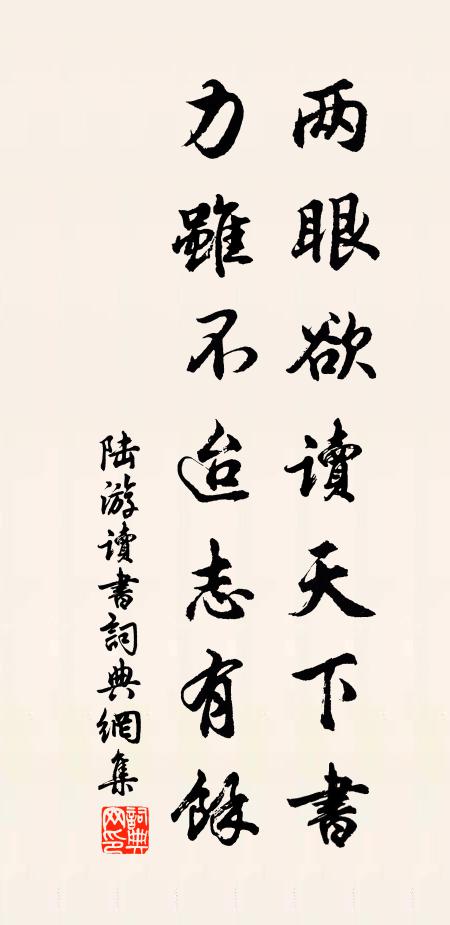 两眼欲讀天下書
力雖不迨志有餘
陆游讀書詞典網集
詞典網印